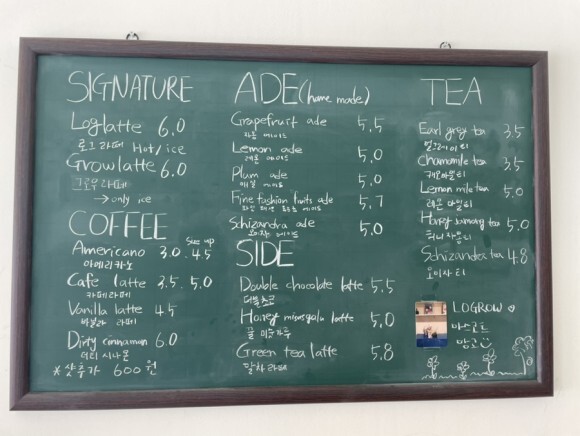 SIGNATURE
Loglatte 6.0
로그라떼 Hot/ice
Growlatte 6.0
그로우라떼
→ only ice
COFFEE
size up
Americano 3.0 4.5
아메리카노
Cafe latte 3.5 5.0
카페라떼
Vanilla latte 4.5
바닐라 라떼
Dirty cinnamon 6.0
더티 시나몬
*샷추가 600원
ADE (home made)
Grapefruit ade 5.5
자몽 에이드
Lemon ade 5.0
레몬 에이드
Plum ade 5.0
매실 에이드
Fine fashion fruits ade 5.7
에이드
Schizandra ade 5.0
오미자 에이드
SIDE
Double chocolate latte 5.5
더블초코
Honey misugalu latte 5.0
꿀 미숫가루
Green tea latte 5.8
말차라떼
TEA
Earl grey tea 3.5
얼그레이티
Chamomile tea 3.5
캐모마일티
Lemon mile tea 5.0
레몬 마일티
Honey jamong tea 5.0
허니자몽티
Schizandra tea 4.8
오미자티
LOGROW ♡
마스코트